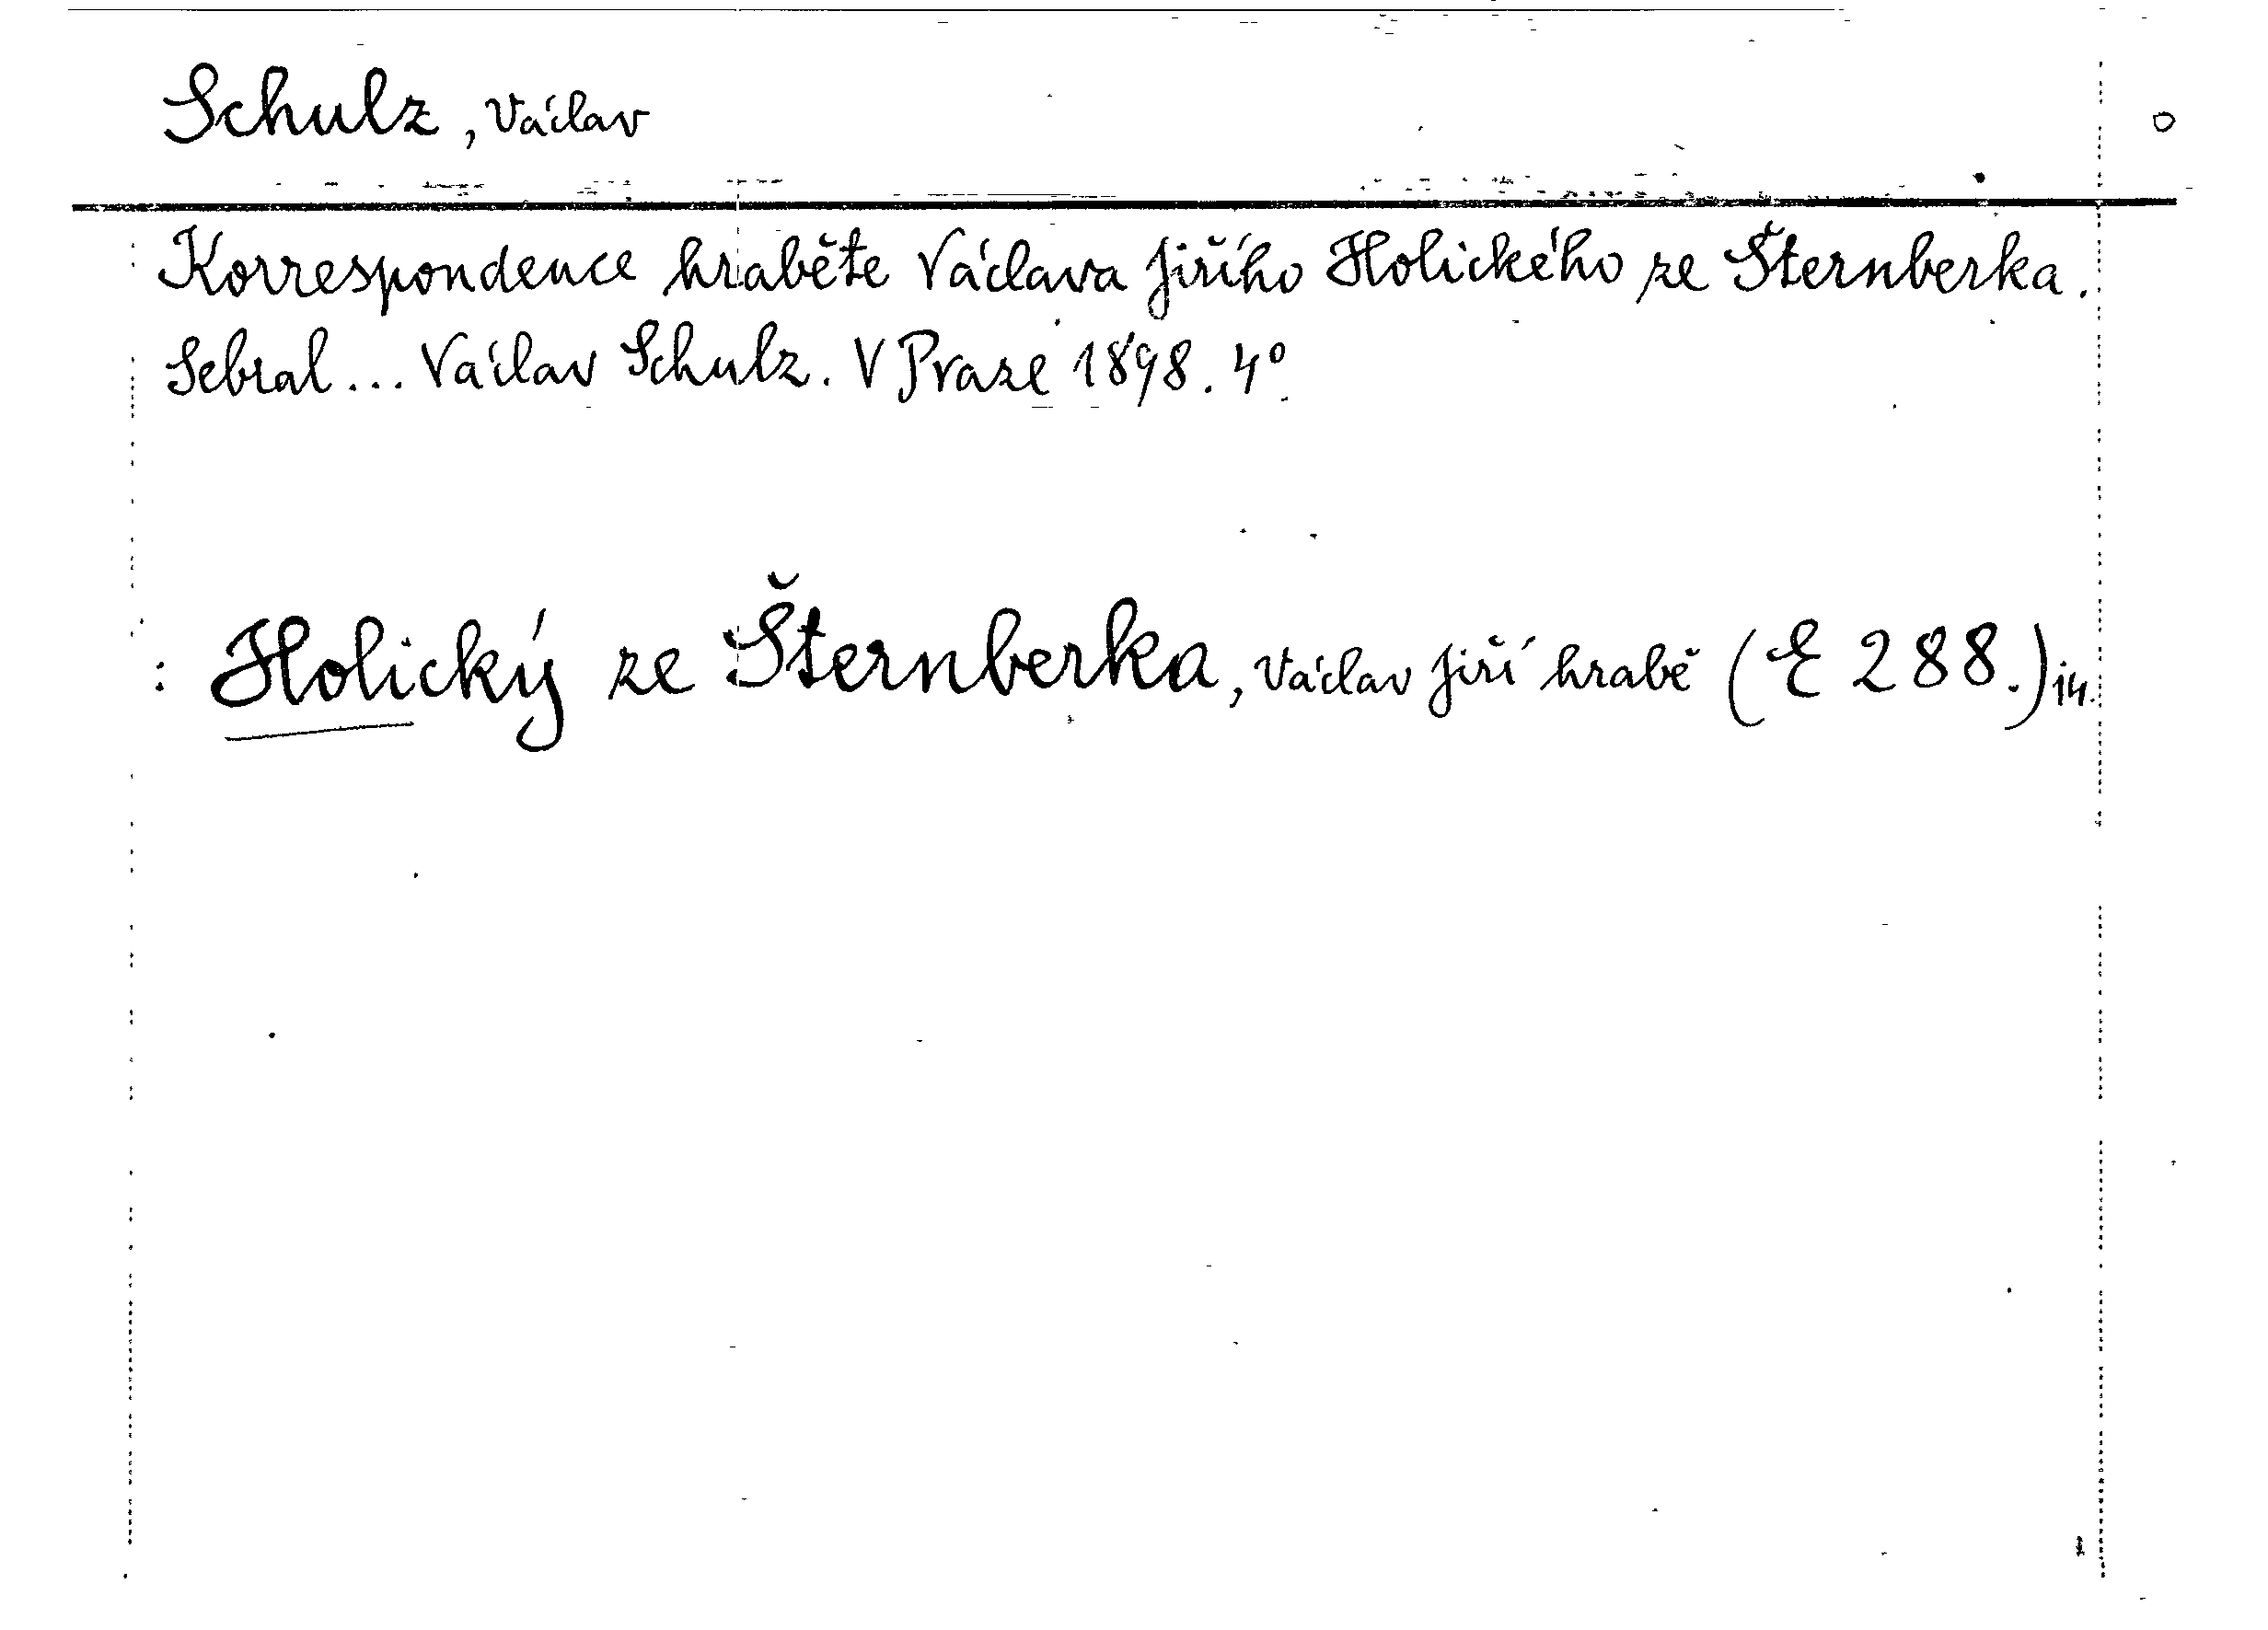 Schulz, Václav
Korrespondence hraběte Václava Jiřího Holického ze Šternberka.
Sebral... Václav Schulz. V Praze 1898. 4°.
: Holický ze Šternberka, Václav Jiří hrabě (E 288.)